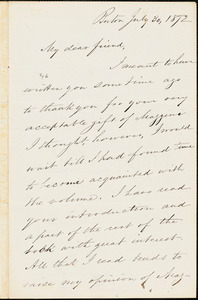 Boston July 20, 1872
My dear friend,
I meant to have
written you some time ago
to thank you for your very
acceptable gift of Mazzini
I thought, however, I would
wait till I had found time
to become acquainted with
the volume. I have read
your introduction and
a part of the rest of the
book with great interest.
All that I read tends to
raise my opinion of Maz-